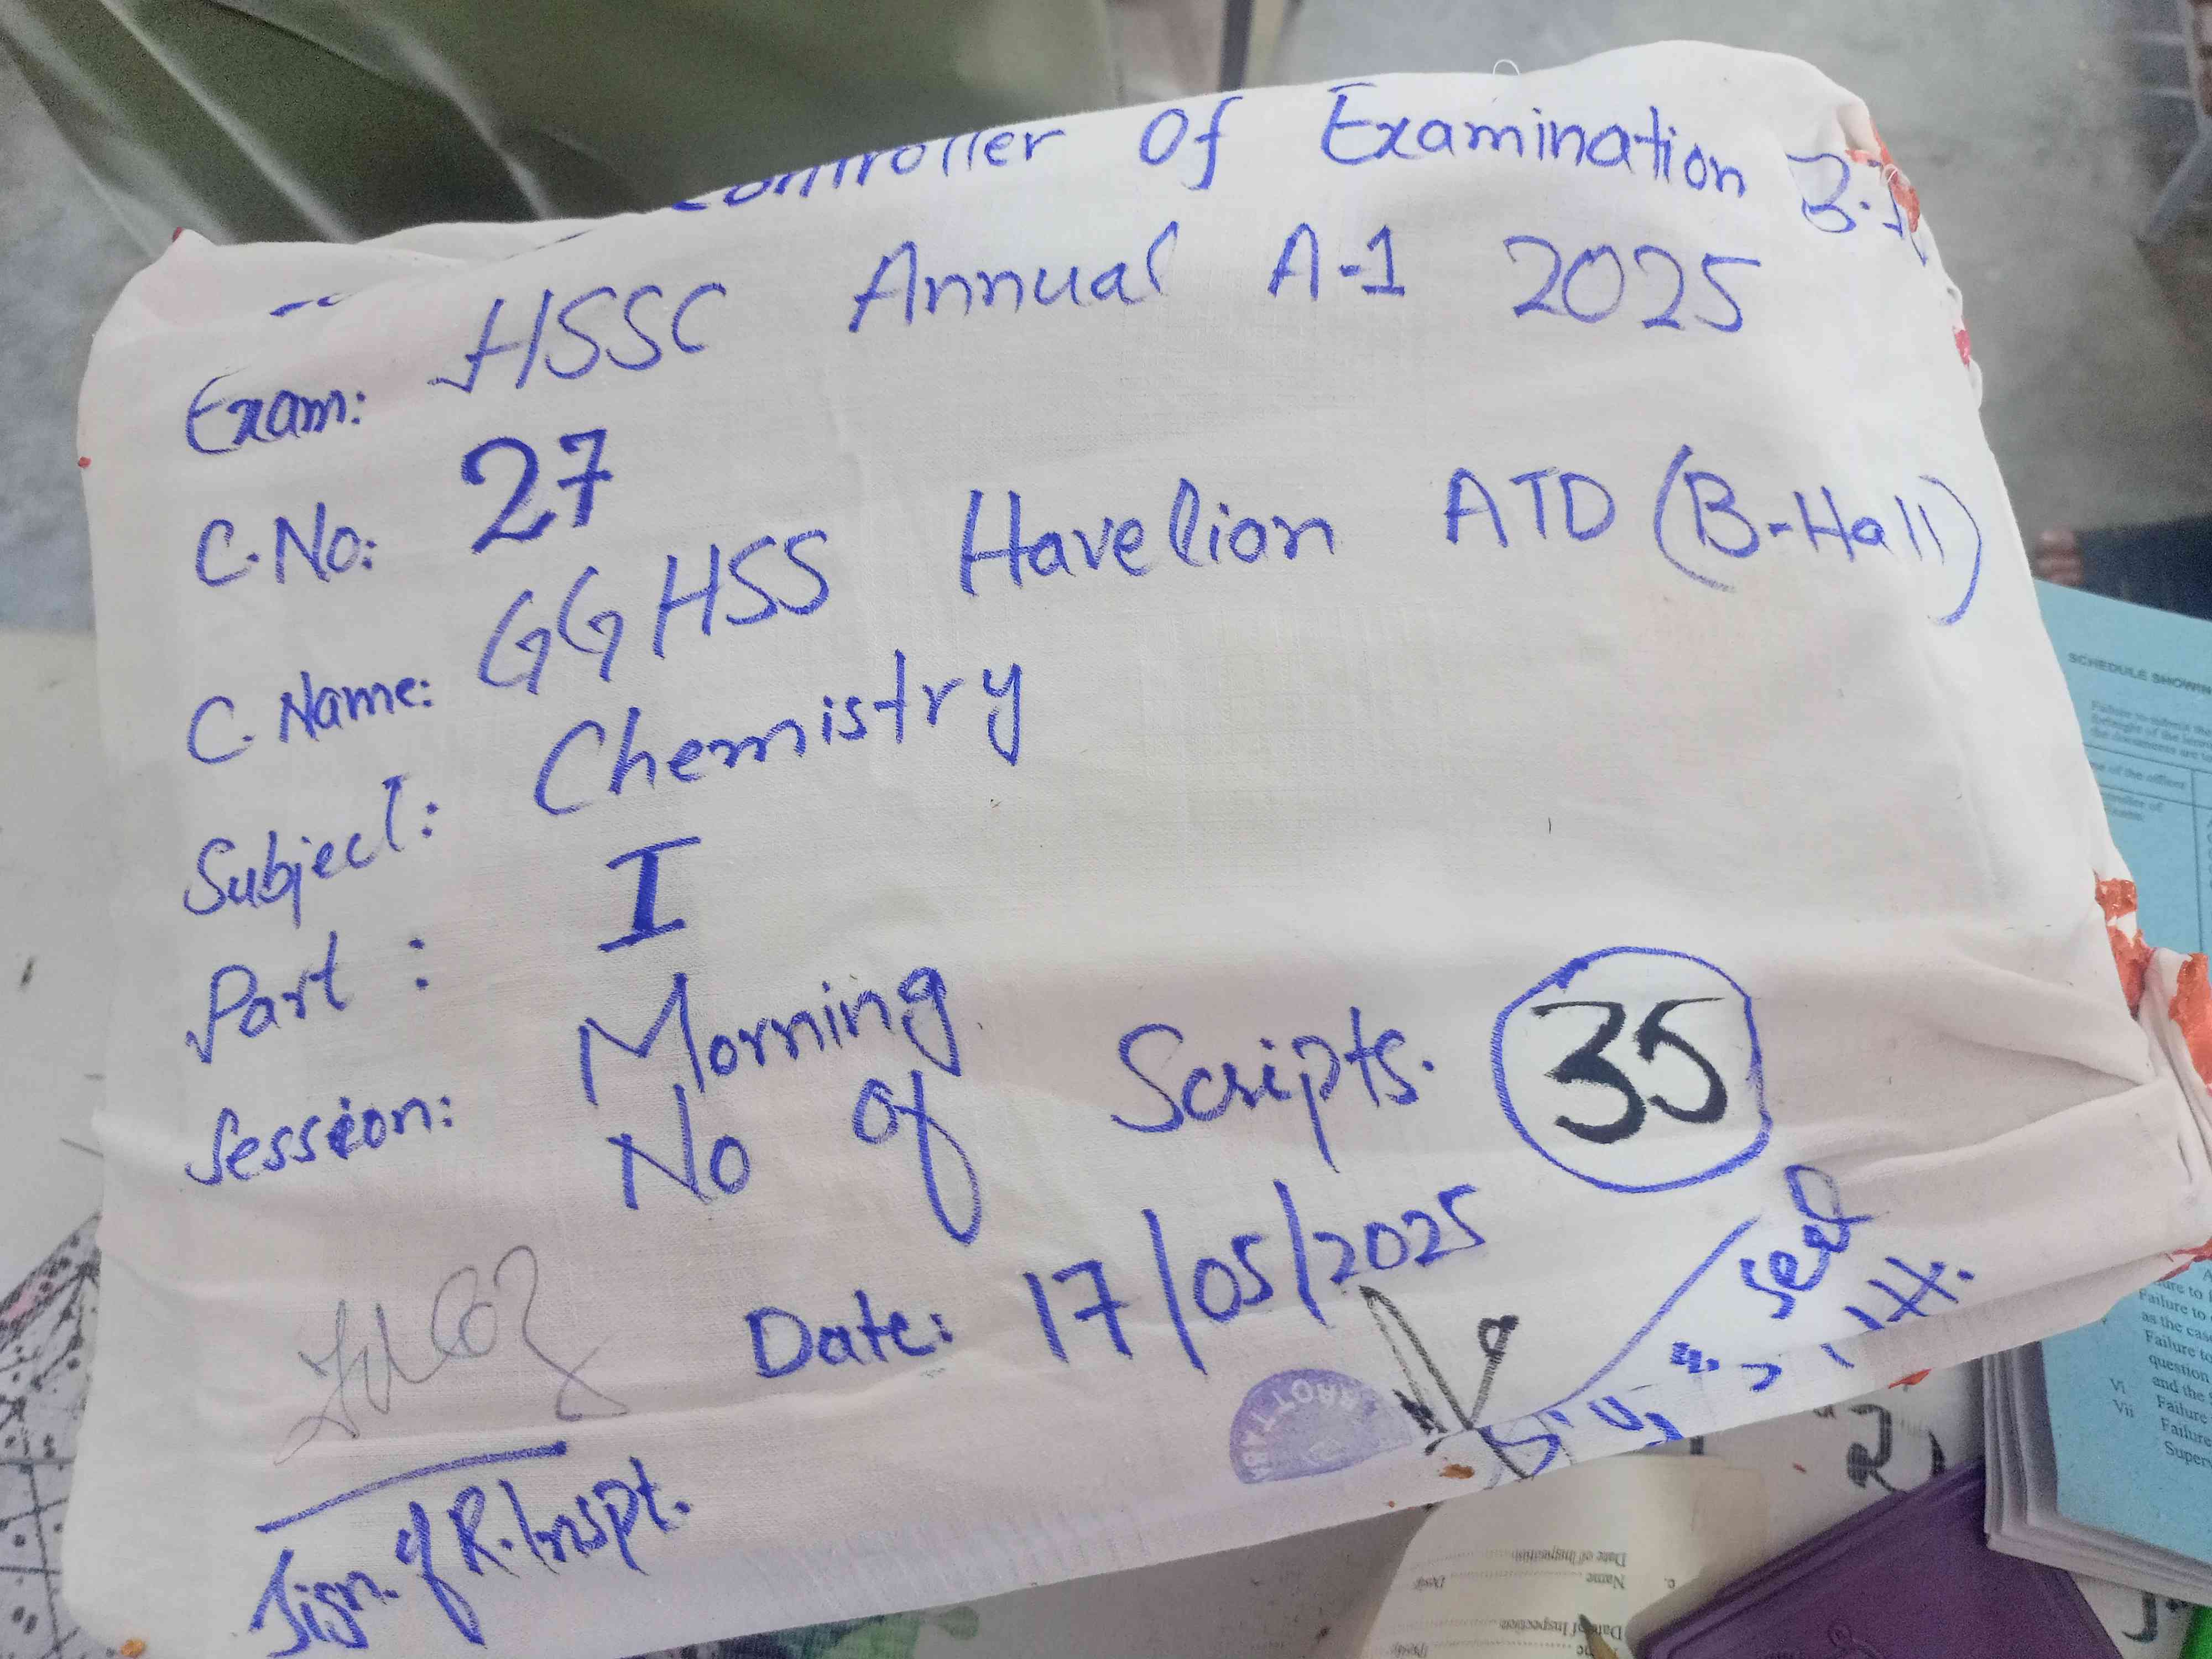 Controller Of Examination
Exam: HSSC Annual A-1 2025
C.No: 27
C.Name: GGHSS Havelion ATD (B-Hall)
Subject: Chemistry
Part : I
Session: Morning
No of Scripts. 35
Date: 17/05/2025
Sign. of R.Inspt.
SCHEDULE SHOWING
Failure to
Failure to
as the case
Failure to
question
and the
Vi Failure
Vii Failure
Date of Inspection
Name
Date of Inspection